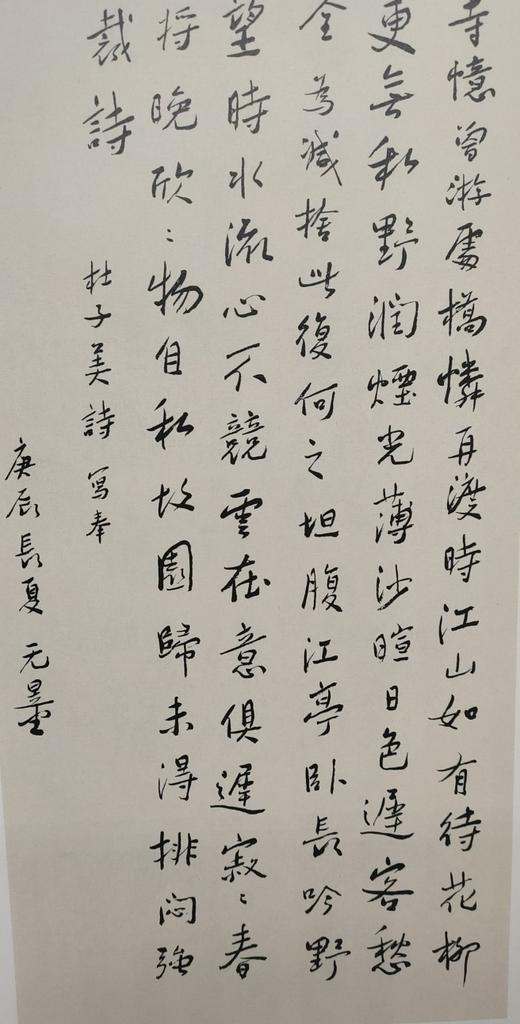 寺憶曾游處橋憐再渡時江山如有待花柳
更無私野潤煙光薄沙暄日色遲客愁
全為減捨此復何之坦腹江亭卧長吟野
望時水流心不競雲在意俱遲寂〻春
将晚欣〻物自私故園歸未得排悶強
裁詩
杜子美詩 寫奉
庚辰長夏 无量